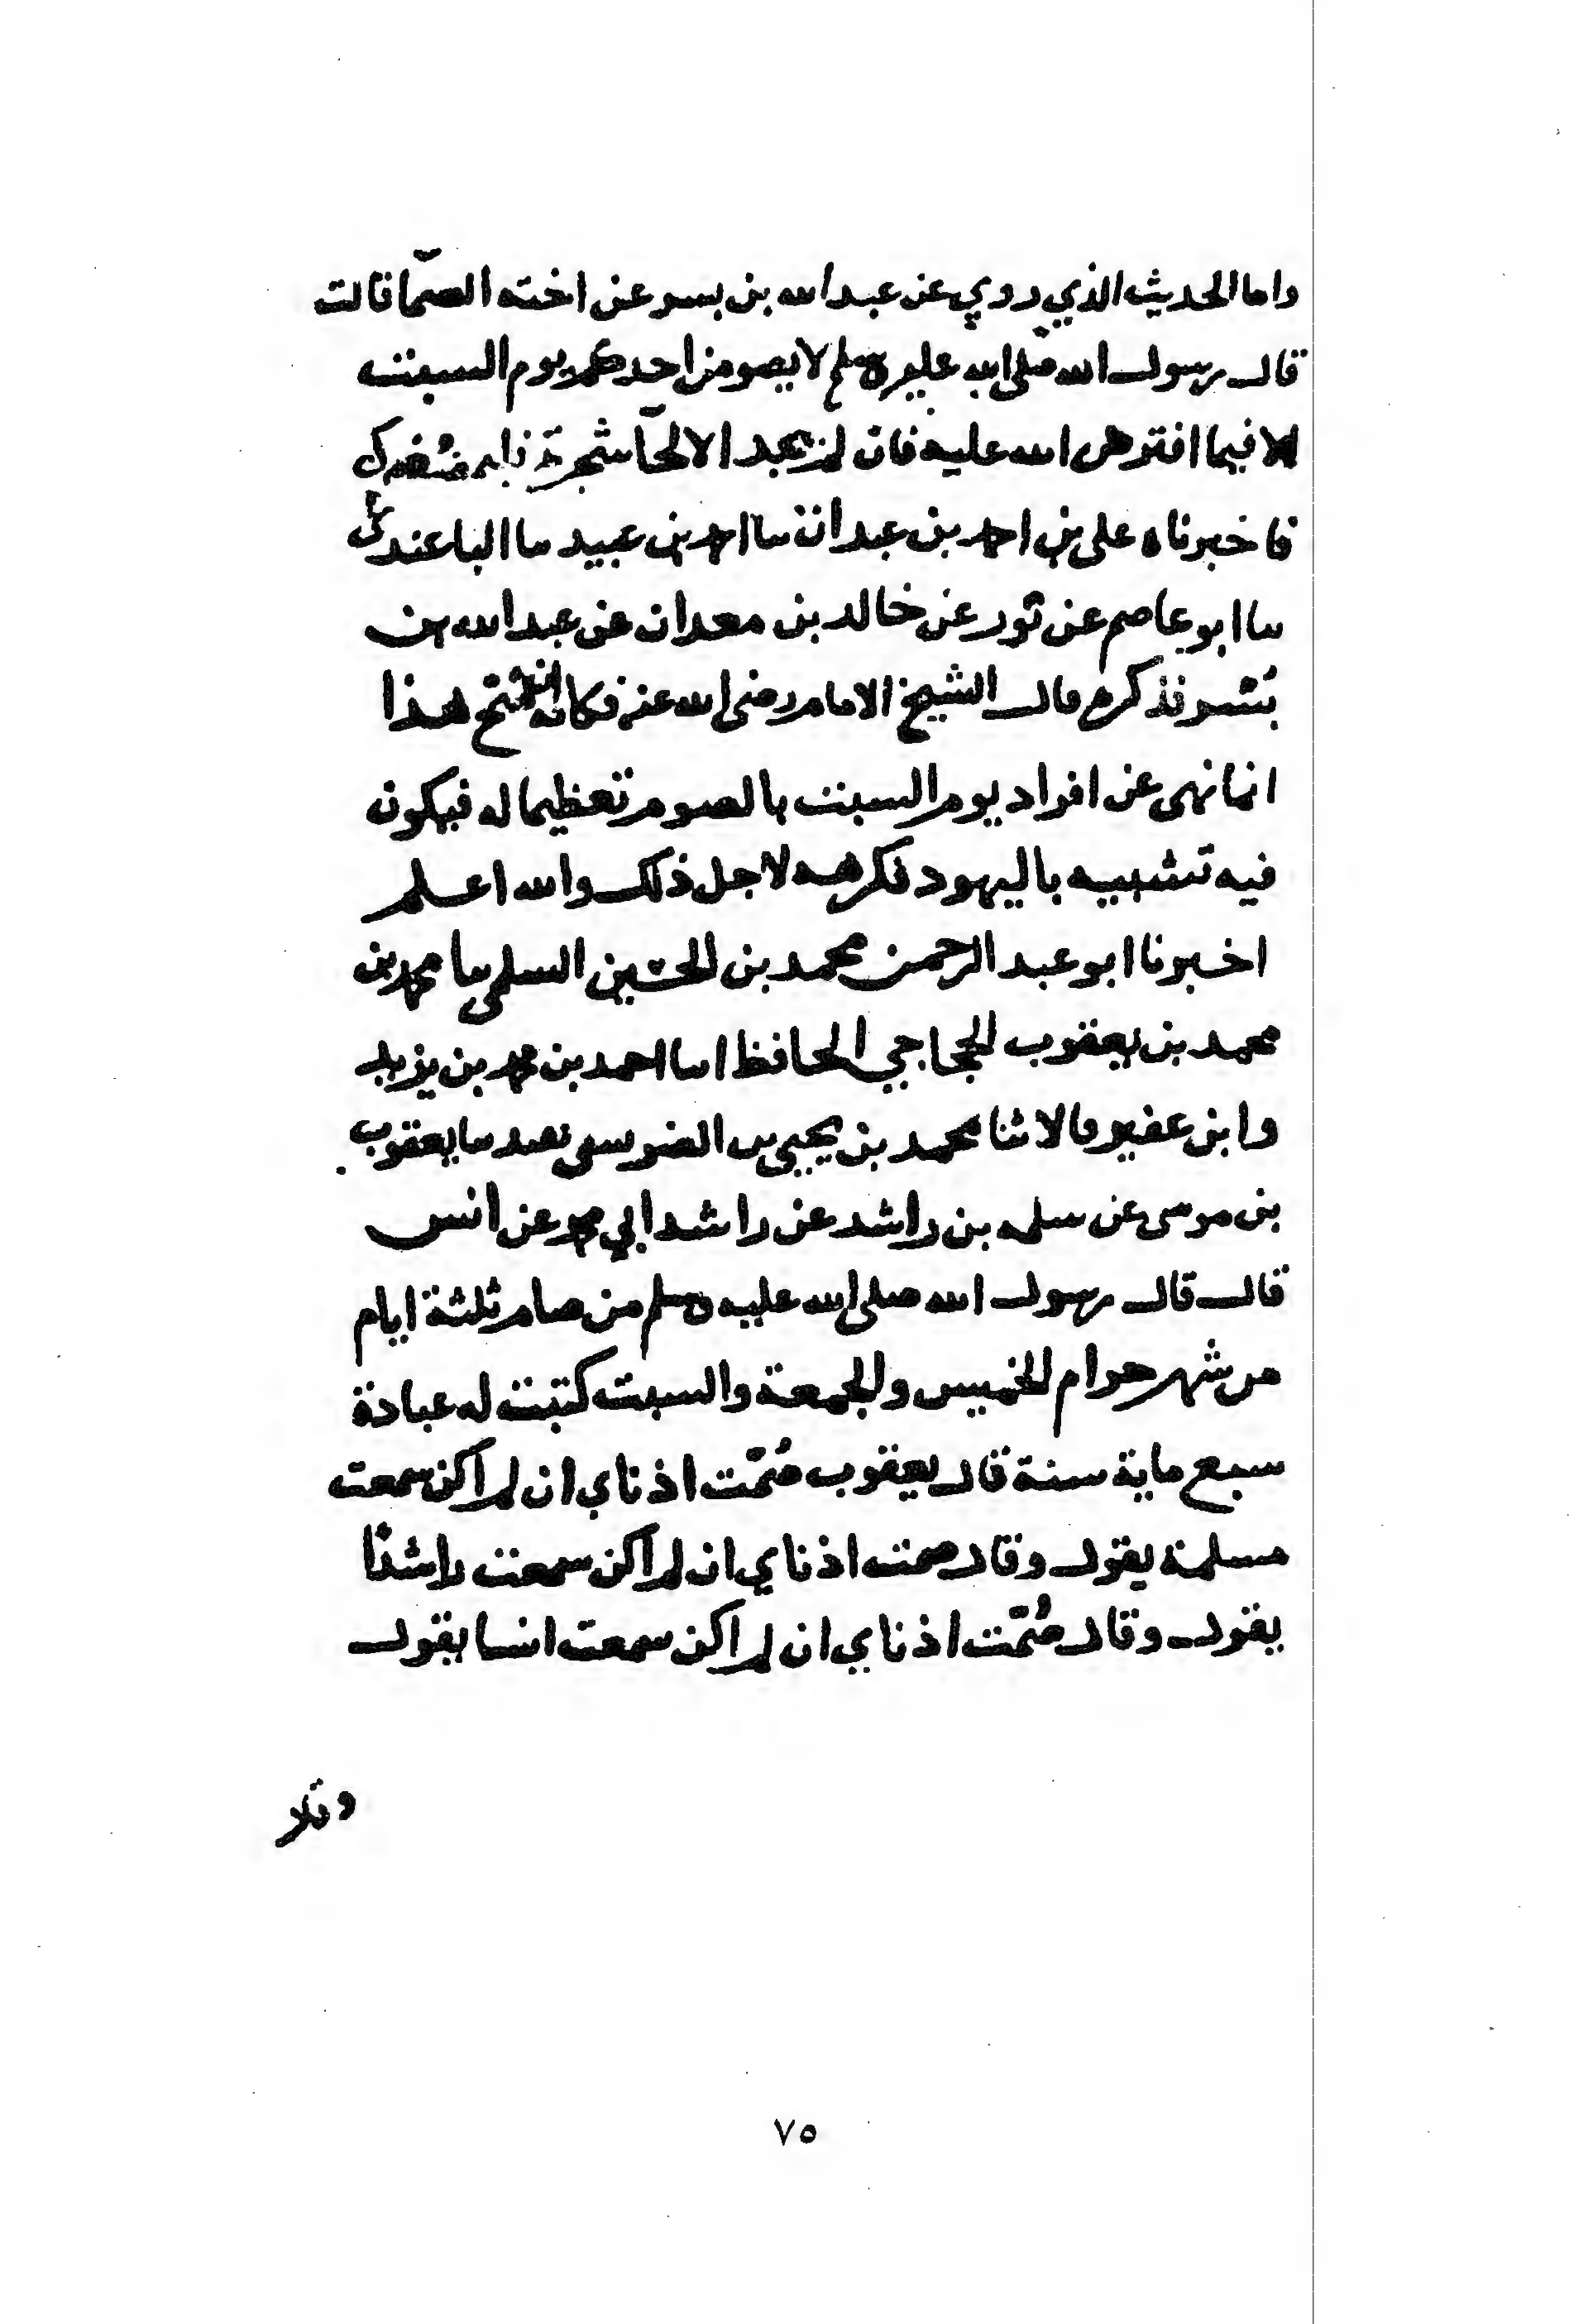 واما الحديث الذي روي عن عبد الله بن بسر عن اخته الصمّا قالت
قال رسول الله صلى الله عليه وسلم لا يصومن احدكم يوم السبت
الا فيما افترض الله عليه فان لم يجد الا لحآ شجرة
فاخبرناه علي بن احمد بن عبدان سا احمد بن عبيد سا الباغندي
سا ابو عاصم عن ثور عن خالد بن معدان عن عبد الله بن
بُسر فذكره قال الشيخ الامام رضى الله عنه فكانه هذا
انما نهى عن افراد يوم السبت بالصوم تعظيما له فيكون
فيه تشبيه باليهود فكرهه لاجل ذلك والله اعلم
اخبرنا ابو عبد الرحمن محمد بن الحسين السلمي سا محمد بن
محمد بن يعقوب الحجاجي الحافظ اسا احمد بن محمد بن يزيد
وابن عفير قالا ثنا محمد بن يحيى سا يعقوب
بن موسى عن سلمه بن راشد عن راشد ابي محمد عن انس
قال قال رسول الله صلى الله عليه وسلم من صام ثلثة ايام
من شهر حرام الخميس والجمعة والسبت كتبت له عبادة
سبع ماية سنة قال يعقوب صُمّت اذناي ان لم اكن سمعت
مسلمة يقول وقال صمت اذناي ان لم اكن سمعت راشدًا
يقول وقال صُمّت اذناي ان لم اكن سمعت انسا يقول
٧٥